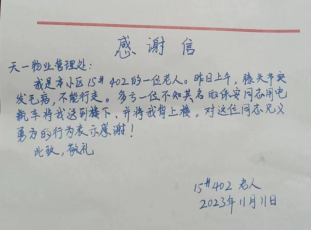 感谢信
天一物业管理处：
我是本小区15#402的一位老人。昨日上午，膝关节突
发毛病，不能行走。多亏一位不知其名的保安同志用电
瓶车将我送到楼下，并将我背上楼。对这位同志见义
勇为的行为表示感谢！
此致，敬礼
15#402 老人
2023年11月11日